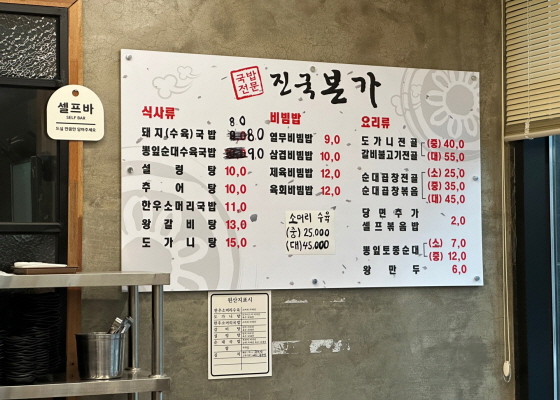 셀프바
SELF BAR
드실 만큼만 담아주세요
국밥
전문
진국본가
식사류
8 0
돼지(수육)국밥 8.0
뽕잎순대수육국밥 9.0
설렁탕 10,0
추어탕 10,0
한우소머리국밥 11,0
왕갈비탕 13,0
도가니탕 15,0
비빔밥
열무비빔밥 9,0
삼겹비빔밥 10,0
제육비빔밥 12,0
육회비빔밥 12,0
소머리 수육
(중) 25.000
(대) 45.000
요리류
도가니전골 (중) 40,0
갈비불고기전골 (대) 55,0
순대곱창전골 (소) 25,0
순대곱창볶음 (중) 35,0
(대) 45,0
당면추가
셀프볶음밥 2,0
뽕잎토종순대 (소) 7,0
(중) 12,0
왕만두 6,0
원산지표시